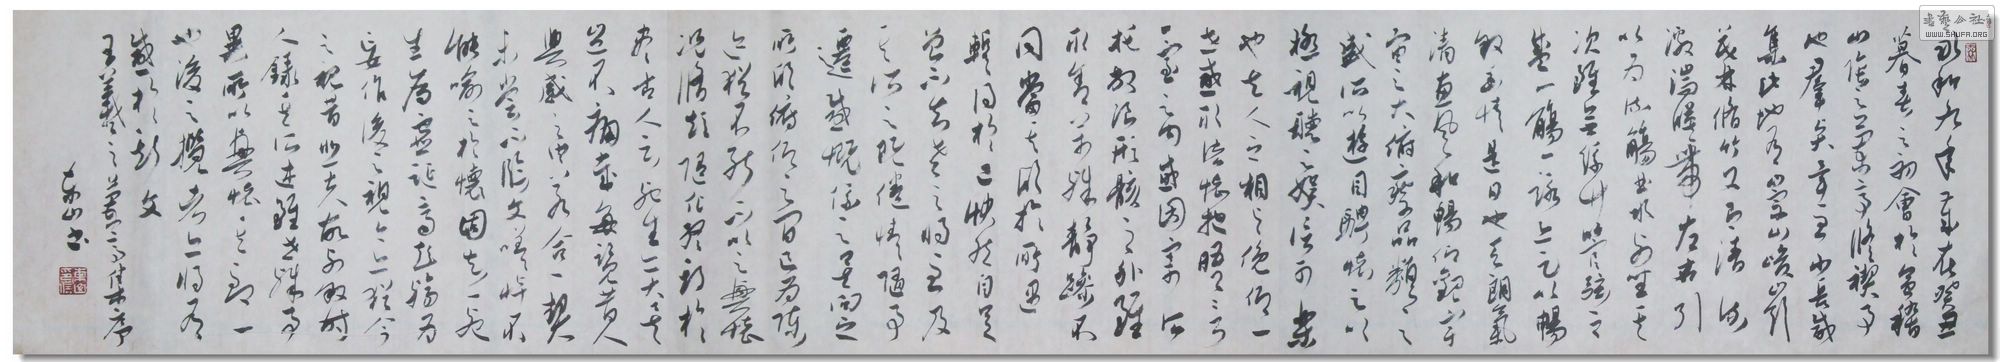 永和九年歲在癸丑
暮春之初會於會稽
山陰之蘭亭脩禊事
也羣賢畢至少長咸
集此地有崇山峻嶺
茂林脩竹又有清流
激湍暎帶左右引
以為流觴曲水列坐其
次雖無絲竹管弦之
盛一觴一詠亦足以暢
敘幽情是日也天朗氣
清惠風和暢仰觀宇
宙之大俯察品類之
盛所以遊目騁懷足以
極視聽之娛信可樂
也夫人之相與俛仰一
世或取諸懷抱晤言
一室之內或因寄所
托放浪形骸之外雖
取舍萬殊靜躁不
同當其欣於所遇
輒得於己快然自足
曾不知老之將至及
其所之既倦情隨事
遷感慨係之矣向之
所欣俯仰之間已為陳
迹猶不能不以之興懷
況脩短隨化終期於
盡古人云死生亦大矣
豈不痛哉每覽昔人
興感之由若合一契
未嘗不臨文嗟悼不
能喻之於懷固知一死
生為虛誕齊彭殤為
妄作後之視今亦猶今
之視昔悲夫故列敘時
人錄其所述雖世殊事
異所以興懷其致一
也後之攬者亦將有
感於斯文
王羲之蘭亭集序
東山書
書藝公社
WWW.SHUFA.ORG